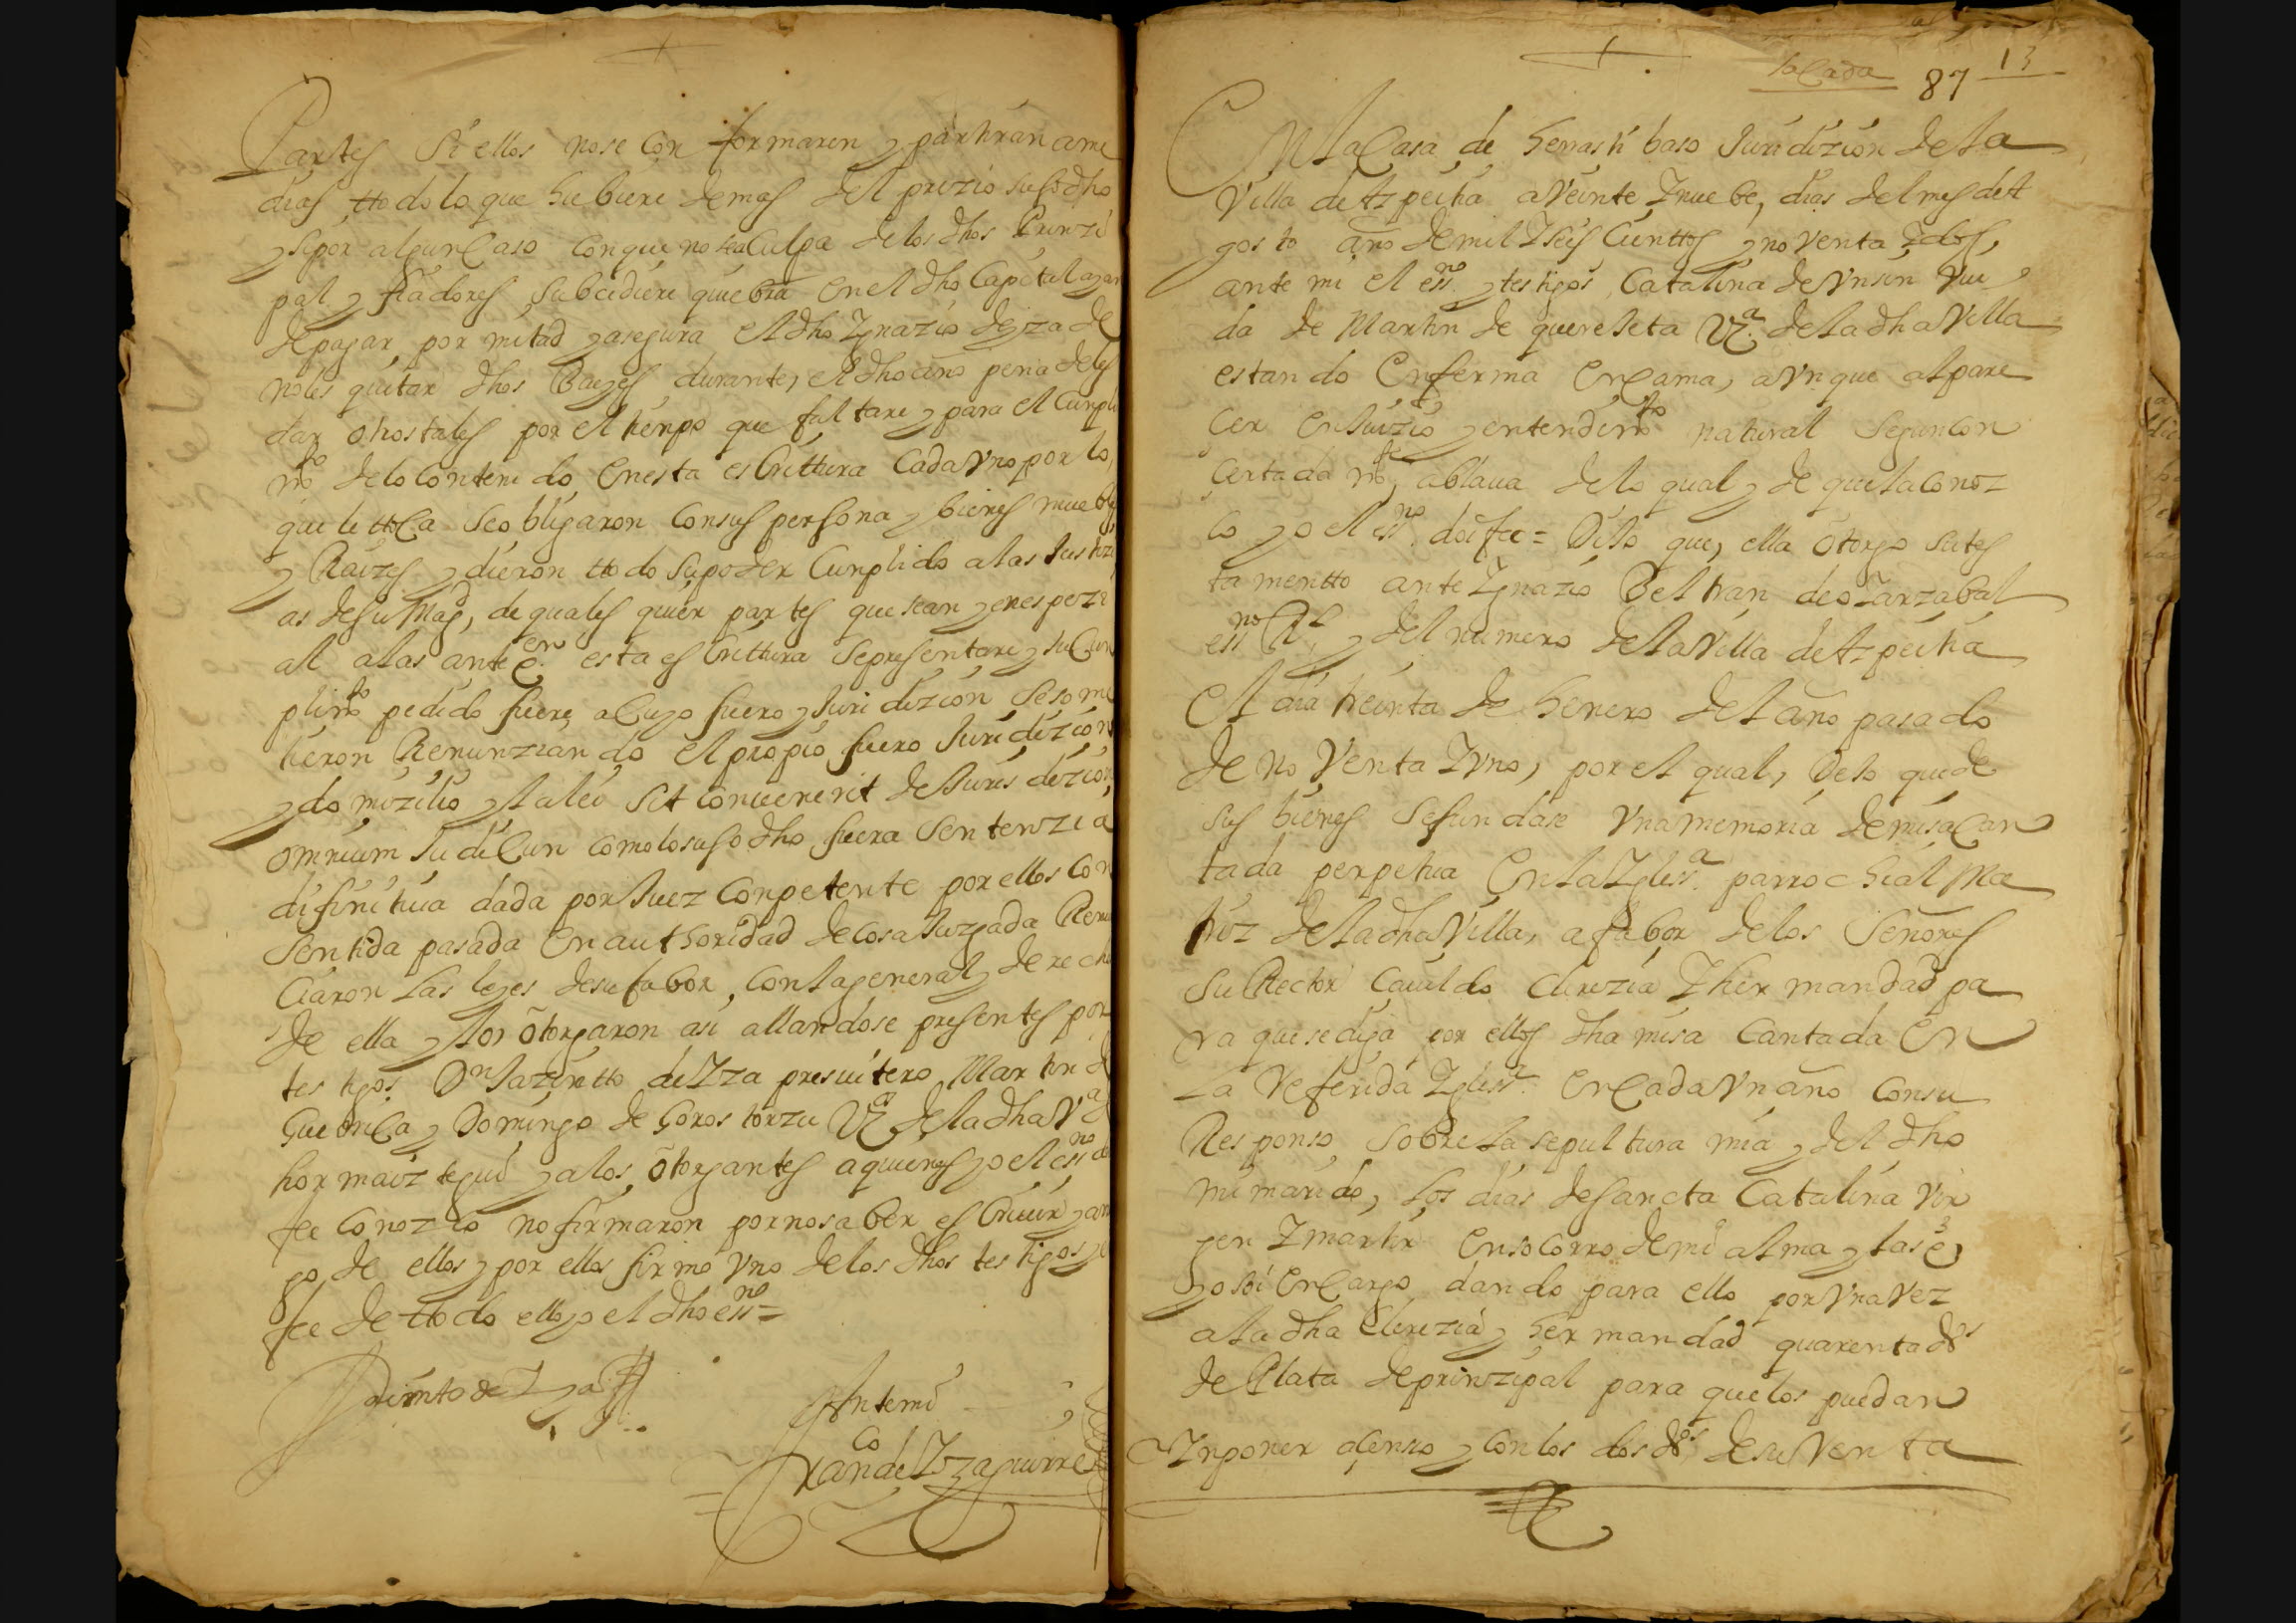 Partes Si ellos no se Con formaren y partiran a me
dias ttodo lo que hubiere demas del prezio suso dho
y si por algun Caso con que no sea Culpa de los dhos Prinzi
pal y fiadores subcediere quiebra en el dho Capital ayan
de pagar por mitad y asegura el dho Ygnazio de Yza de
no les quitar dhos Bueyes durante, el dho año pena de les
dar otros tales por el tienpo que faltare y para el Cunpli
mto de lo Contenido en esta escrittura Cada Vno por lo
que le ttoca se obligaron con sus persona y bienes muebles
y Raizes y dieron ttodo su poder Cunplido a las Justizi
as de su Magd, de quales quier partes que sean y en espezi
al a las ante qn esta escrittura se presentare y su Cun
plimto pedido fuere, a Cuyo fuero y Juridizion se some
tieron Renunziando el propio fuero Juridizion
y domizilio y la lei sit conuenerit de Jurisdizion
omnium Judicun como lo suso dho fuera Sentenzia
difinitiua dada por Juez Conpetente por ellos con
sentida pasada en authoridad de cosa Juzgada Renun
ciaron las leyes de su fabor, con la general y derecho
de ella y los otorgaron asi allandose presentes por
testigos Dn Jazintto de Yza presuitero Martin de
Guerrica y Domingo de Gorostorzu Vzos de la dha Va
por maiz tegui y a los otorgantes a quienes yo el essno doi
fee conozco no firmaron por no saber escriuir y a rue
go de ellos y por ellos firmo Vno de los dhos testigos y
fee de ttodo ello yo el dho essno =
Jazinto de Yza
Ante mi
Franco de Yzaguirre
sacada 87 13
En la Casa de henasti baso Juridizion de la
Villa de Azpeitia a Veinte Y nuebe, dias del mes de A
gosto año de mil Y seis Cienttos y noventa Y dos,
ante mi el essno y testigos Catalina de Vnsin Viu
da de Martin de quereleta Vza de la dha Villa
estando Enferma En Cama, aVnque al pare
cer en su Juizio y entendimto natural Segun con
certadamte ablaua de lo qual y de que la conoz
co yo el essno doi fee = Dijo que, ella otorgo su tes
tamentto ante Ygnazio Beltran de oLarzabal
essno Rl y del numero de la Villa de Azpeitia
El dia treinta de henero del año pasado
de noVenta Y Vno, por el qual, Dejo que de
sus bienes se fundase Vna memoria de misa Can
tada perpetua En la Yglesa parrochial Ma
triz de la dha Villa, a fabor de los Señores
su Rector Cauildo Clerezia Y hermandad pa
ra que se diga por ellos dha misa Cantada En
La Referida Yglesa En Cada Vn año con su
Responso sobre la sepultura mia y del dho
mi marido, los dias de Sancta Catalina Vir
gen Y martir en socorro de mi alma y las de
yo soi En Cargo dando para ello por Vna Vez
a la dha Clerezia y hermandad quarenta dos
de Plata de prinzipal para que los puedan
Ynponer a çenso y con los dos dos de su Renta